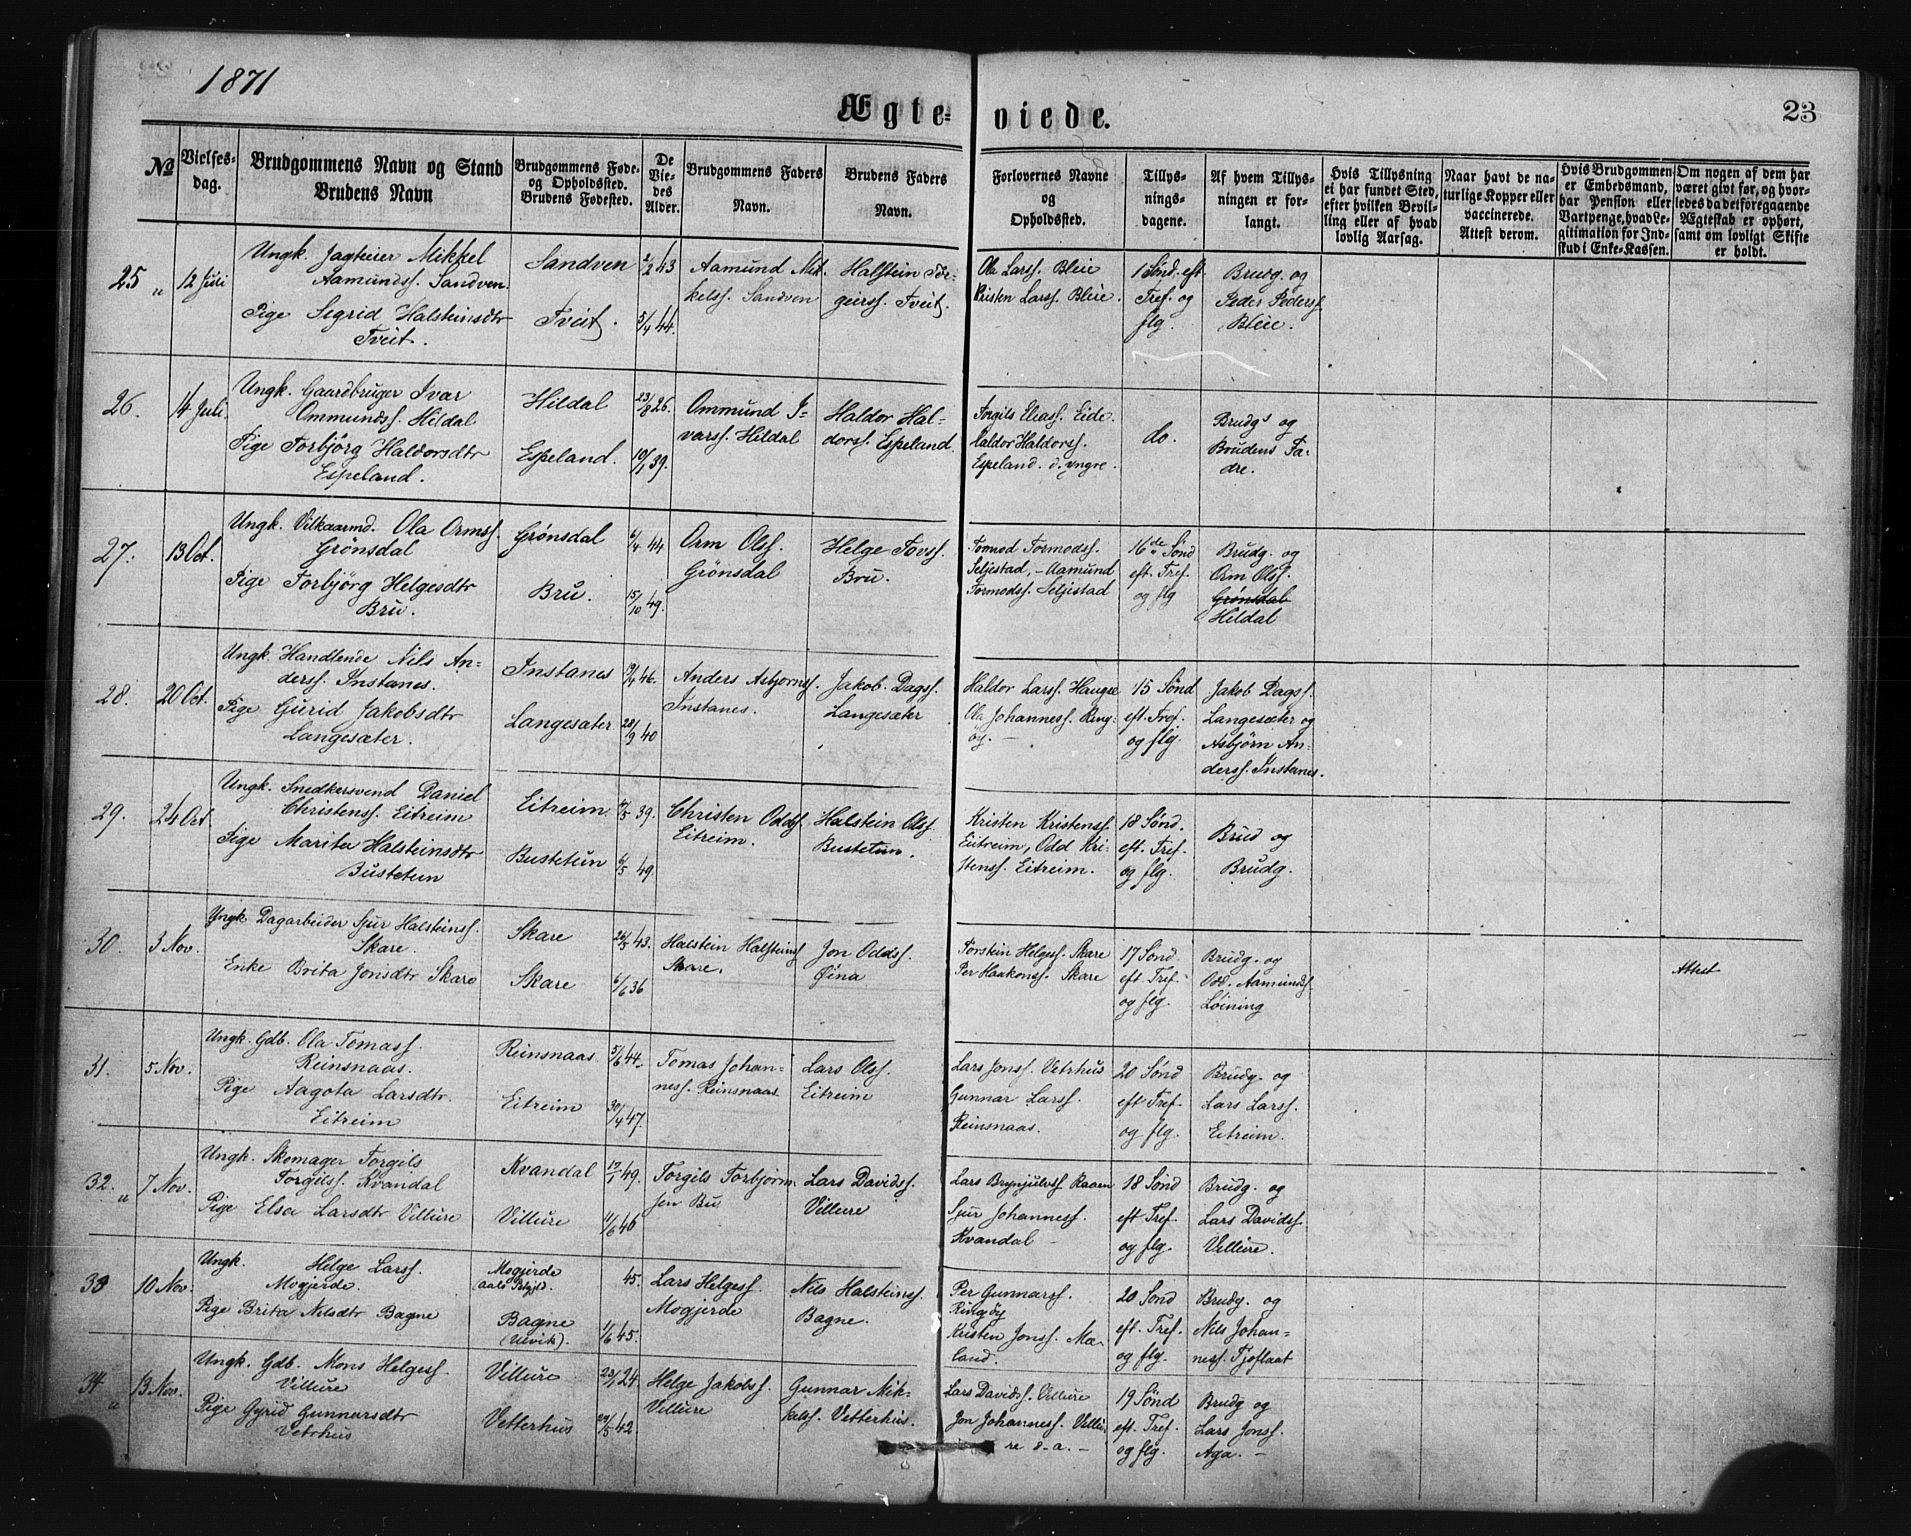 1871
23
Ægte- viede.
No
Vielses-
dag.
Brudgommens Navn og Stand
Brudens Navn
Brudgommens Føde-
og Opholdssted.
Brudens Fødested.
De
Vie-
des
Alder.
Brudgommens Faders
Navn.
Brudens Faders
Navn.
Forlovernes Navne
og
Opholdssted.
Tillys-
nings-
dagene.
Af hvem Tillys-
ningen er for-
langt.
Hvis Tillysning
ei har fundet Sted,
efter hvilken Bevil-
ling eller af hvad
lovlig Aarsag.
Naar havt de na-
turlige Kopper eller
vaccinerede.
Attest derom.
Hvis Brudgommen
er Embedsmand,
har Pension eller
Vartpenge, hvad Le-
gitimation for Ind-
skud i Enke-Kassen.
Om nogen af dem har
været givt før, og hvor-
ledes da det foregaaende
Ægteskab er ophørt,
samt om lovligt Skifte
er holdt.
25 " 12 Juli
Ungk. Jagteier Mikkel
Aamundss. Sandven.
Pige Segrid Halsteinsdtr
Tveit.
Sandven
Tveit.
2/2 43
5/4 44.
Aamund Mik-
kelss. Sandven
Halstein Tor-
geirss. Tveit.
Ola Larss. Bleie
Kristen Larss. Bleie.
1 Sønd. eft
Tref. og
flg.
Brudg. og
Peder Pederss.
Bleie.
26. 14 Juli.
Ungk. Gaardbruger Ivar
Ommundss. Hildal
Pige Torbjörg Haldorsdtr
Espeland.
Hildal
Espeland.
23/8 26.
10/1 39.
Ommund I-
varss. Hildal
Haldor Hal-
dorss. Espeland
Torgils Eleass. Eide.
Haldor Haldorss.
Espeland. d. yngre.
do.
Brudgs og
Brudens Fa-
dre.
27. 13 Oct.
Ungk. Vilkaarmd. Ola Ormss.
Grönsdal
Pige Torbjörg Helgesdtr
Bru.
Grønsdal
Bru.
6/4 44
15/10 49.
Orm Olss.
Grönsdal
Helge Tovss.
Bru.
Tormod Tormodss.
Seljestad, - Aamund
Tormodss. Seljestad
16de Sönd
eft. Tref.
og flg
Brudg. og
Orm Olss.
Grønsdal
Hildal
28. 20 Oct.
Ungk. Handlende Nils An-
derss. Instanes.
Pige Gurid Jakobsdtr
Langesæter.
Instanes
Langesæter
19/4 46.
28/9 40
Anders Asbjornss.
Instanes.
Jakob Dagss.
Langesæter
Haldor Larss. Haugse
Ola Johanness. Ring-
öy. -
15 Sönd
eft. Tref.
og flg.
Jakob Dagss.
Langesæter og
Asbjørn An-
derss. Instanes.
29. 24 Oct.
Ungk. Snedkersvend Daniel
Christenss. Eitreim
Pige Marita Halsteinsdtr
Bustetun
Eitreim
Bustetun
17/5 39.
6/5 49.
Christen Oddss.
Eitreim.
Halstein Olss.
Bustetun.
Kristen Kristenss.
Eitreim, Odd Kri-
stenss. Eitreim.
18 Sönd.
eft. Tref.
og flg.
Brud og
Brudg.
30. 3 Nov.
Ungk Dagarbeider Sjur Halsteinss.
Skare.
Enke Brita Jonsdtr Skare
Skare
Skare
26/5 43.
6/6 36
Halstein Halsteinss
Skare.
Jon Oddss.
Øina
Torstein Helgess. Skare
Per Haakonss. Skare
17 Sönd
eft Tref.
og flg.
Brudg. og
Od. Aamundss.
Löining
Attest
31. 5 Nov.
Ungk. Gdb. Ola Tomass.
Reinsnaas.
Pige Aagota Larsdtr.
Eitreim
Reinsnaas.
Eitreim
5/6 44.
30/4 47.
Tomas Johan-
ness. Reinsnaas
Lars Olss.
Eitreim
Lars Jonss. Vetrhus
Gunnar Larss.
Reinsnaas.
20 Sönd
eft Tref.
og flg.
Brudg. og
Lars Larss.
Eitreim.
32. " 7 Nov.
Ungk. Skomager Torgils
Torgilss. Kvandal
Pige Elsa Larsdtr Villure
Kvandal
Villure
17/1 49.
11/6 46
Torgils Torbjörn-
sen Bu
Lars Davidss.
Villure
Lars Brynjulvss Raaen
Sjur Johanness.
Kvandal -
18 Sönd
eft Tref.
og flg.
Brudg. og
Lars Davidss.
Villure.
33 10 Nov.
Ungk. Helge Larss.
Mogjerde.
Pige Brita Nilsdtr Bagne
Mogjerde
Aals Prgjld.
Bagne
(Ulvik).
45.
17/6 45.
Lars Helgess.
Mogjerde
Nils Halsteinss.
Bagne.
Per Gunnarss.
Ringöy
Kristen Jonss. Mæ-
land.
20 Sönd
eft. Tref.
og flg.
Brudg. og
Nils Johan-
ness. Tjoflaat
34 " 13 Nov.
Ungk. Gdb. Mons Helgess.
Villure
Pige Gyrid Gunnarsdtr
Vetrhus
Villure
Vetterhus
23/1 24.
29/5 42.
Helge Jakobss.
Villure
Gunnar Mik-
kelss. Vetterhus.
Lars Davidss. Villure
Jon Johanness. Villu-
re s. a. -
19 Sönd
eft. Tref.
og flg.
Brudg og
Lars Jonss.
Aga. -